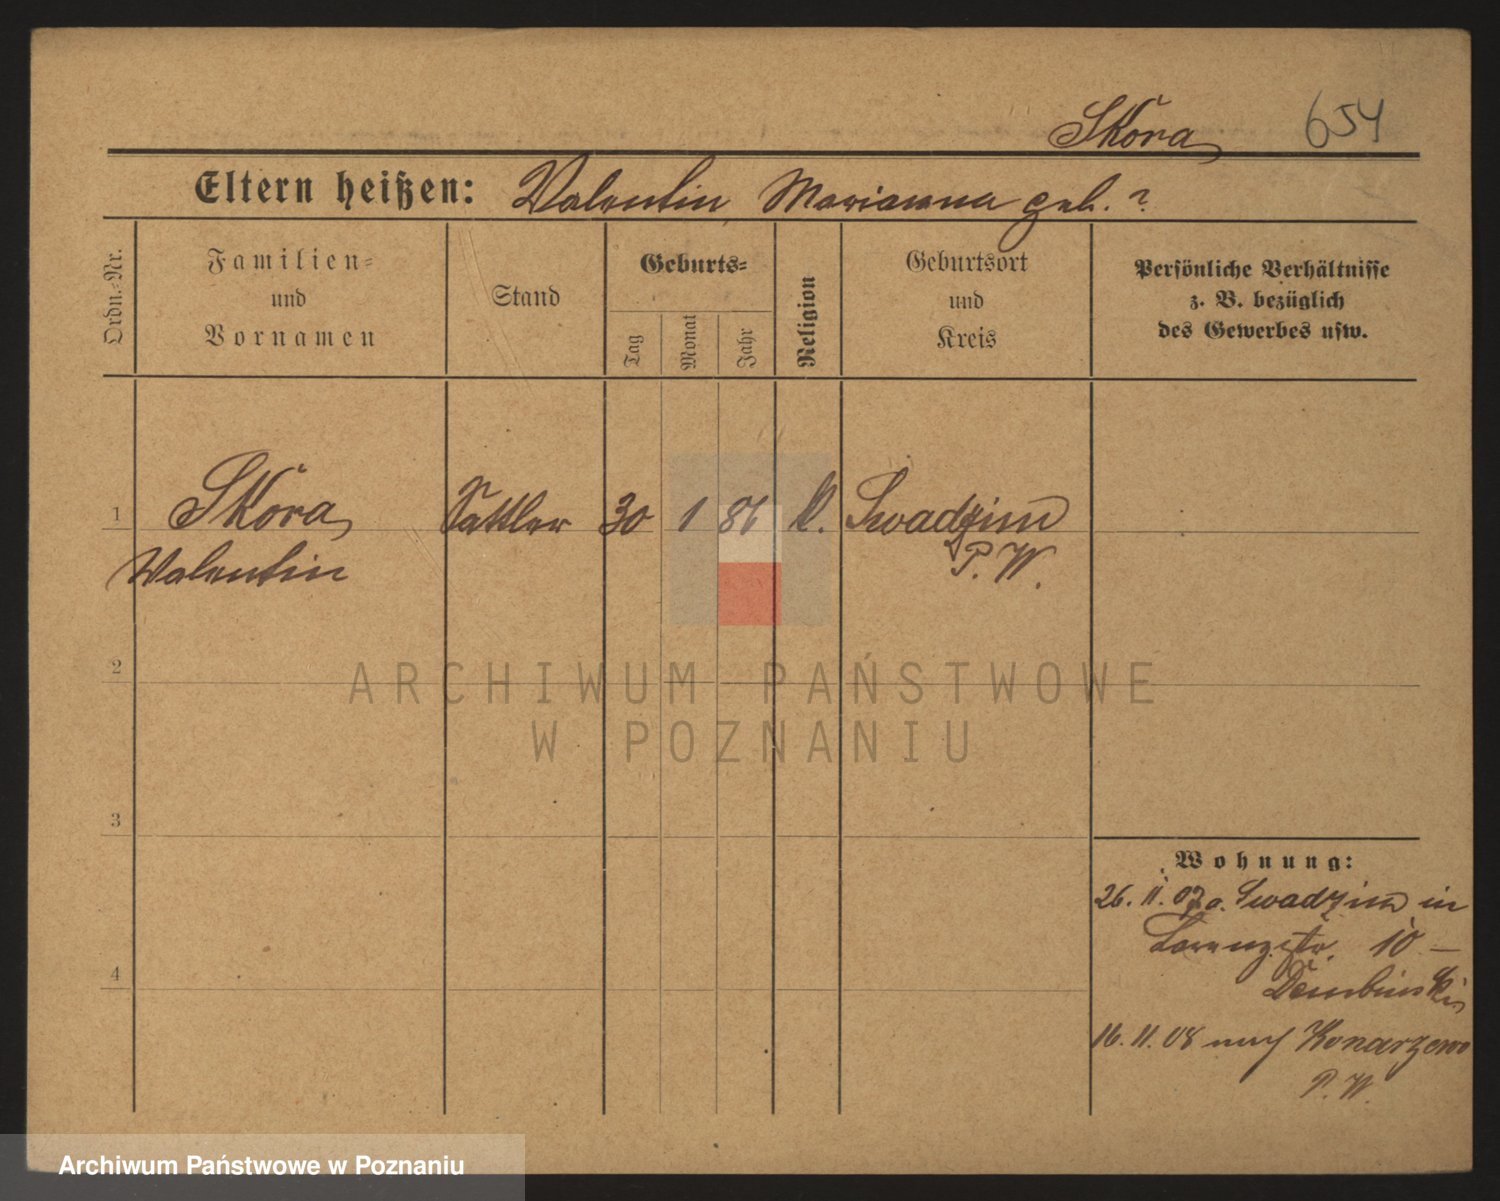 Skóra 654
Eltern heißen: Valentin, Marianna geb. ?
Ordn.-Nr.
Familien-
und
Vornamen
Stand
Geburts-
Tag
Monat
Jahr
Religion
Geburtsort
und
Kreis
Persönliche Verhältnisse
z. B. bezüglich
des Gewerbes usw.
1 Skóra Sattler 30 1 86 k. Swadzim
Valentin P. W.
2
ARCHIWUM PAŃSTWOWE
W POZNANIU
3
Wohnung:
26. 11. 07 a. Swadzim in
Lorenzstr. 10 —
4
Dembinski
16. 11. 08 nach Konarzewo
P. W.
Archiwum Państwowe w Poznaniu